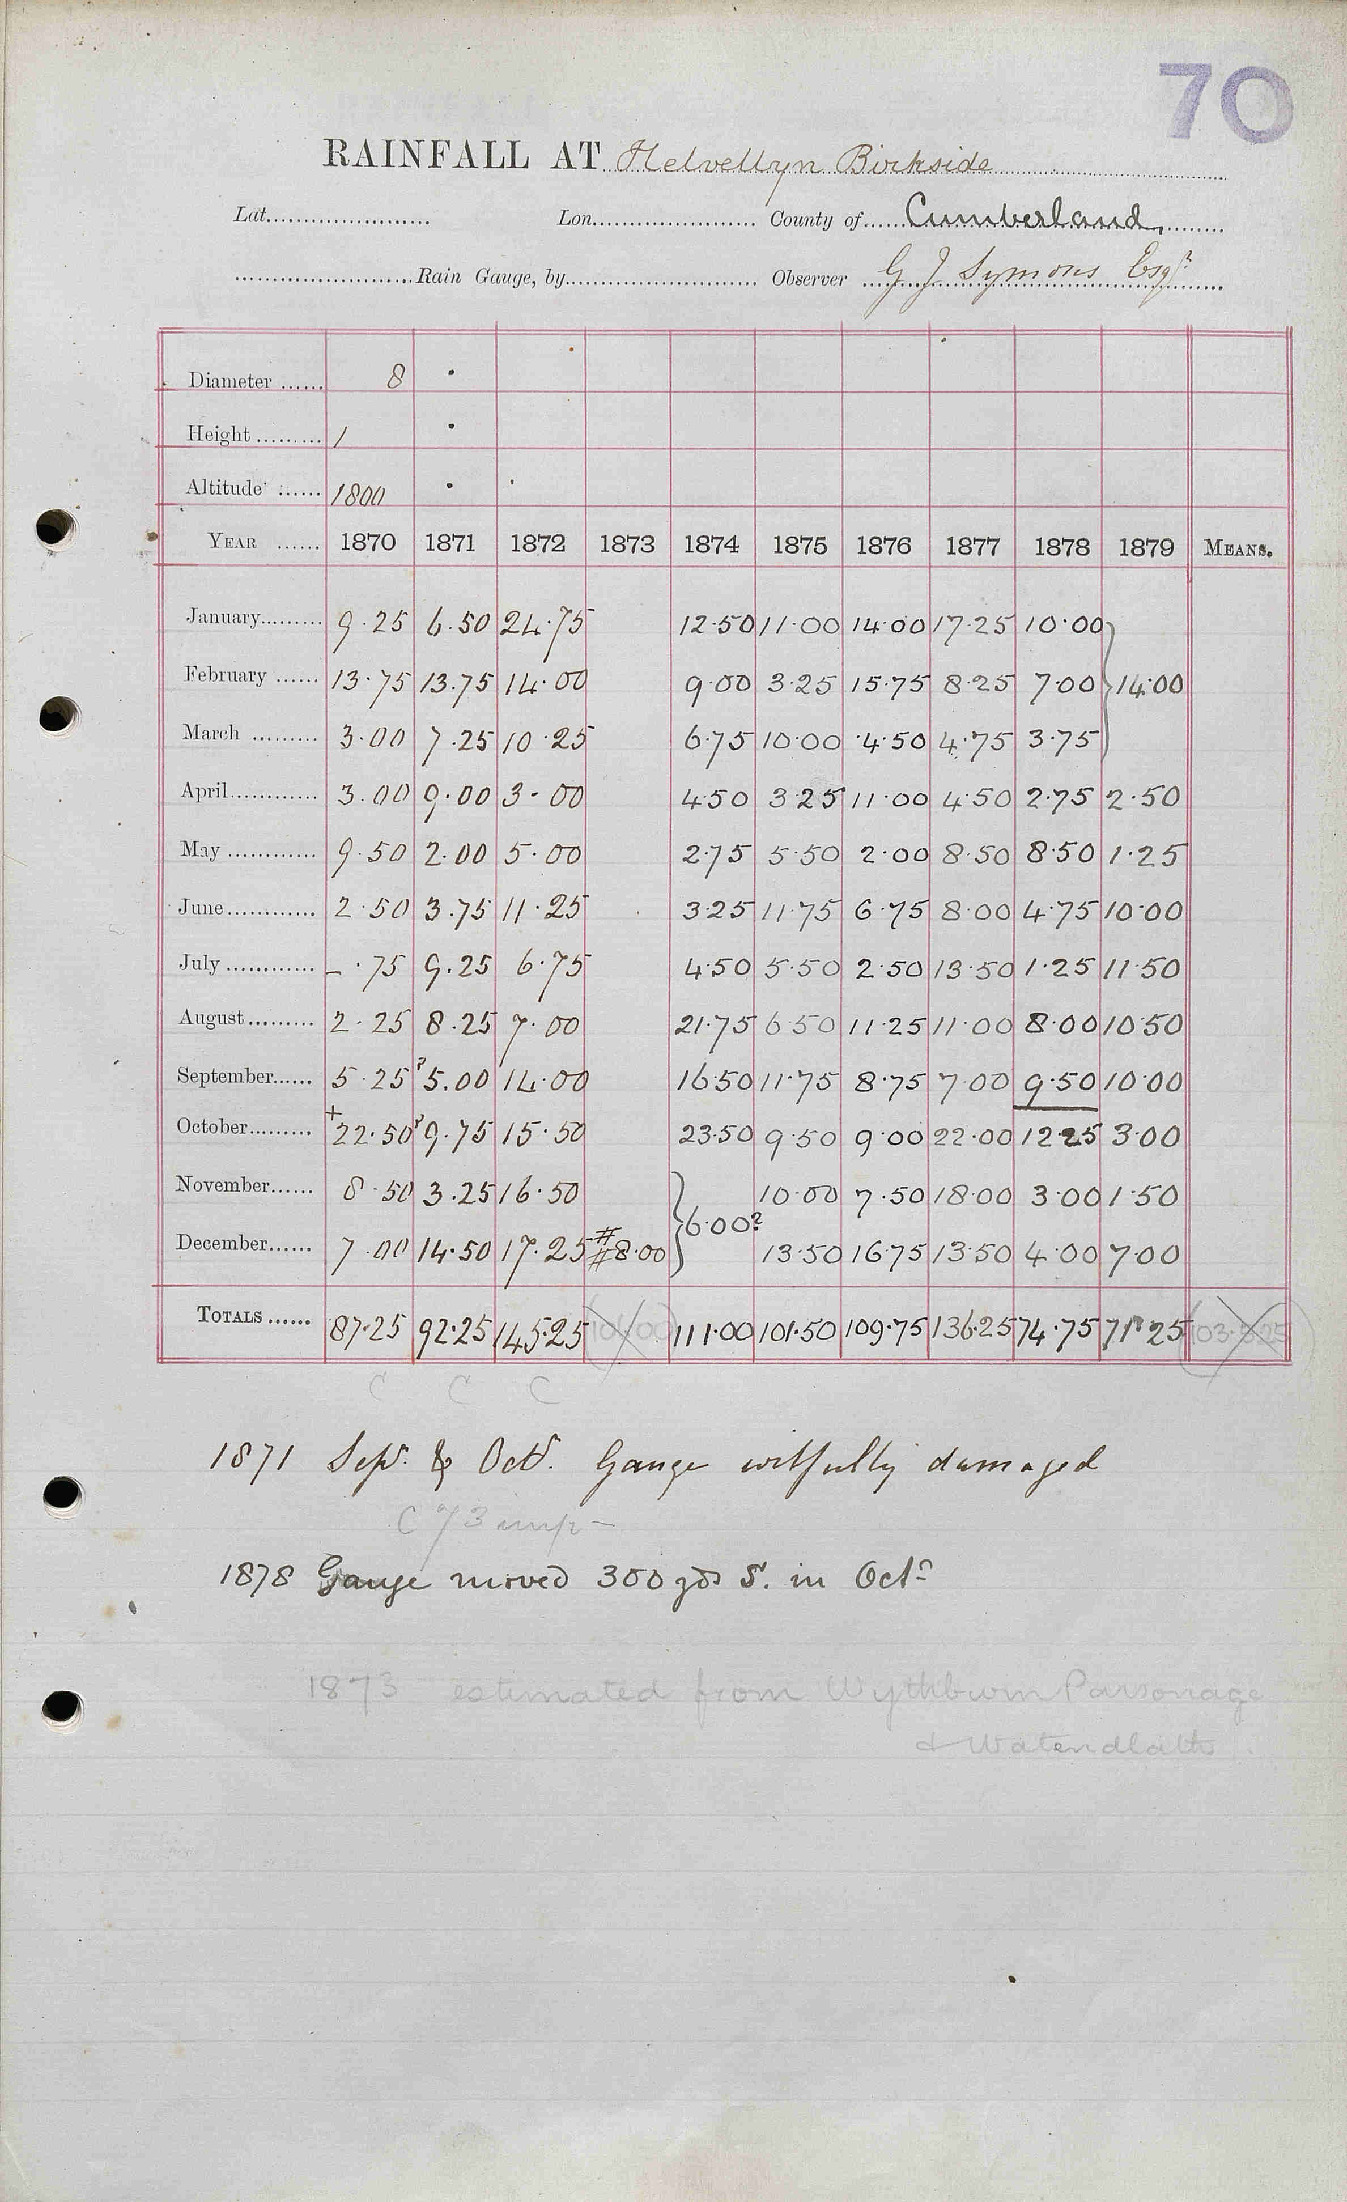 70
RAINFALL AT Helvellyn Birkside
Lat. Lon. County of Cumberland.
Rain Gauge, by Observer G J Symons Esqr
Diameter 8 "
Height 1 "
Altitude 1800 "
YEAR 1870 1871 1872 1873 1874 1875 1876 1877 1878 1879 MEANS.
January 9.25 6.50 24.75 12.50 11.00 14.00 17.25 10.00
February 13.75 13.75 14.00 9.00 3.25 15.75 8.25 7.00 } 14.00
March 3.00 7.25 10.25 6.75 10.00 4.50 4.75 3.75
April 3.00 9.00 3.00 4.50 3.25 11.00 4.50 2.75 2.50
May 9.50 2.00 5.00 2.75 5.50 2.00 8.50 8.50 1.25
June 2.50 3.75 11.25 3.25 11.75 6.75 8.00 4.75 10.00
July - .75 9.25 6.75 4.50 5.50 2.50 13.50 1.25 11.50
August 2.25 8.25 7.00 21.75 6.50 11.25 11.00 8.00 10.50
September 5.25 ?5.00 14.00 16.50 11.75 8.75 7.00 9.50 10.00
October +22.50 ?9.75 15.50 23.50 9.50 9.00 22.00 12.25 3.00
November 8.50 3.25 16.50 10.00 7.50 18.00 3.00 1.50
} 6.00?
December 7.00 14.50 17.25 ##8.00 13.50 16.75 13.50 4.00 7.00
TOTALS 87.25 92.25 145.25 111.00 101.50 109.75 136.25 74.75 71.25
C C C
1871 Sepr. & Octr. Gauge wilfully damaged
C 73 imp -
1878 Gauge moved 300 yds S. in Octr
1873 estimated from Wythburn Parsonage
& Watendlath